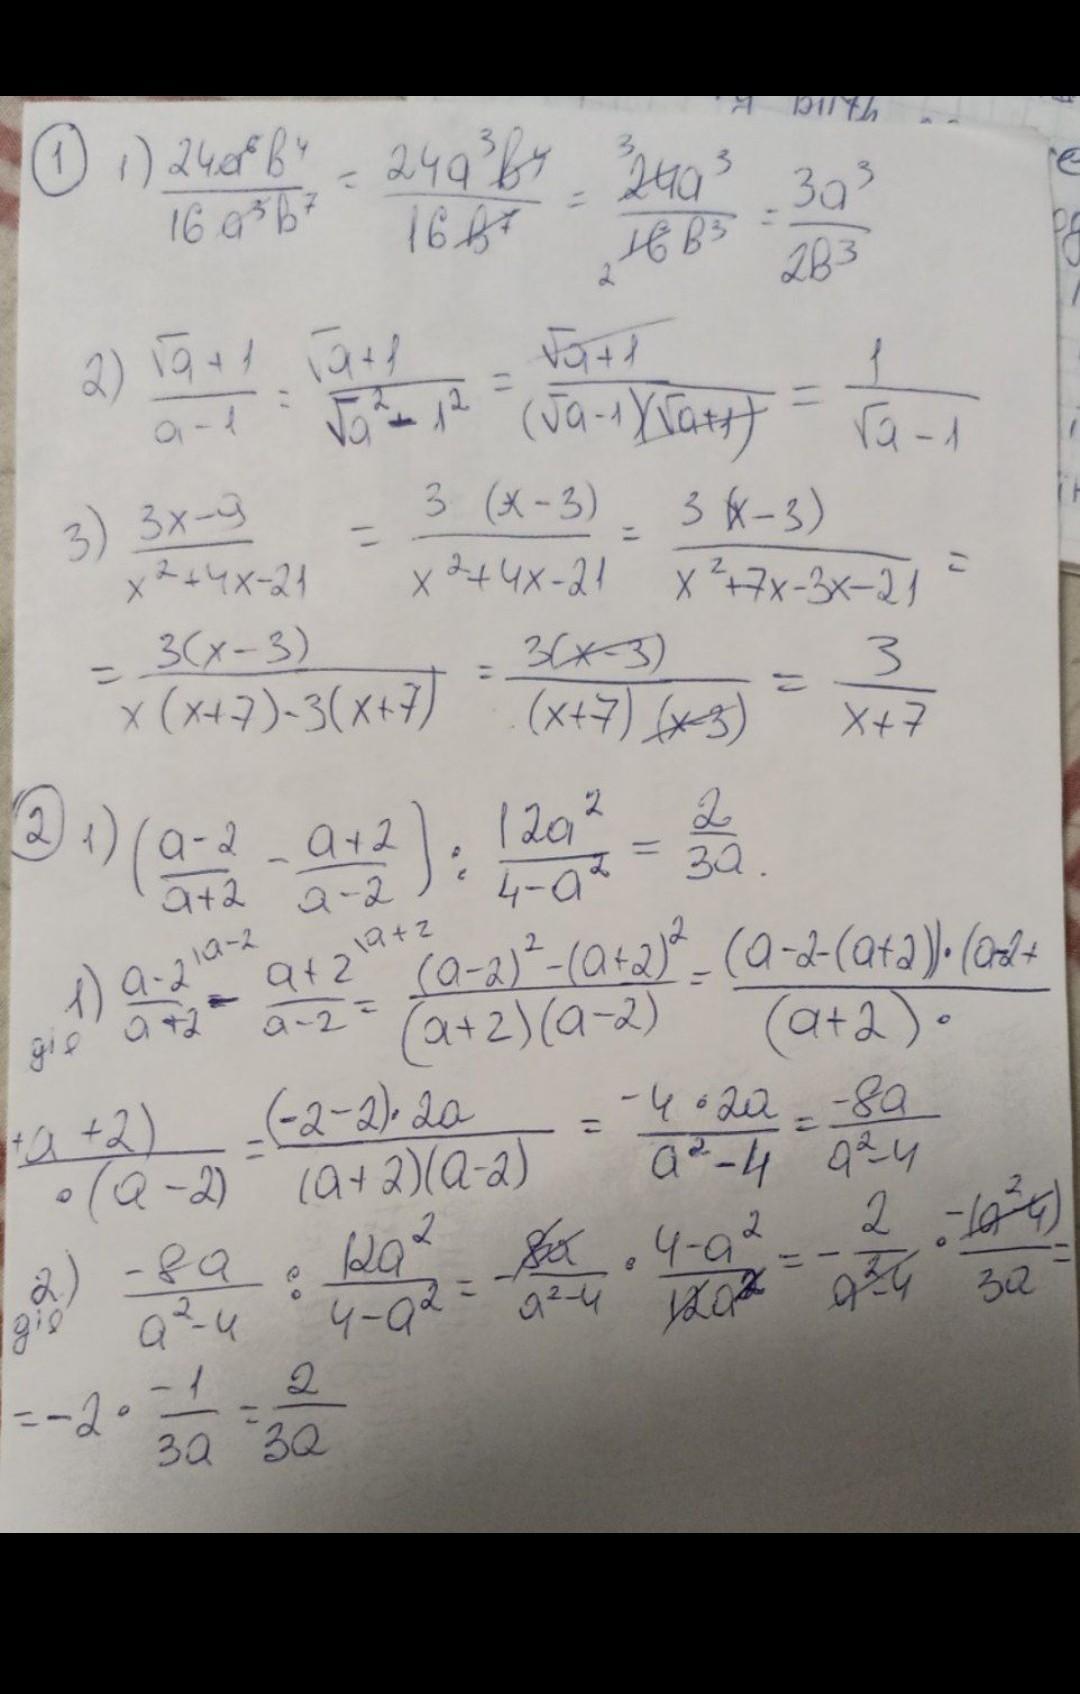 ① 1) 24a⁶b⁴/16a³b⁷ = 24a³b⁴/16b⁷ = 24a³/16b³ = 3a³/2b³
3
2
2) (√a+1)/(a-1) = (√a+1)/(√a²-1²) = (√a+1)/((√a-1)(√a+1)) = 1/(√a-1)
3) (3x-9)/(x²+4x-21) = 3(x-3)/(x²+4x-21) = 3(x-3)/(x²+7x-3x-21) =
= 3(x-3)/(x(x+7)-3(x+7)) = 3(x-3)/((x+7)(x-3)) = 3/(x+7)
② 1) ((a-2)/(a+2) - (a+2)/(a-2)) : 12a²/(4-a²) = 2/3a.
1) дія (a-2)/(a+2) \a-2 - (a+2)/(a-2) \a+2 = ((a-2)²-(a+2)²)/((a+2)(a-2)) = (a-2-(a+2))·(a-2+/(a+2)·
+a+2)/·(a-2) = (-2-2)·2a/((a+2)(a-2)) = -4·2a/(a²-4) = -8a/(a²-4)
2) дія -8a/(a²-4) : 12a²/(4-a²) = -8a/(a²-4) · (4-a²)/12a² = -2/(a²-4) · -(a²-4)/3a =
= -2 · -1/3a = 2/3a